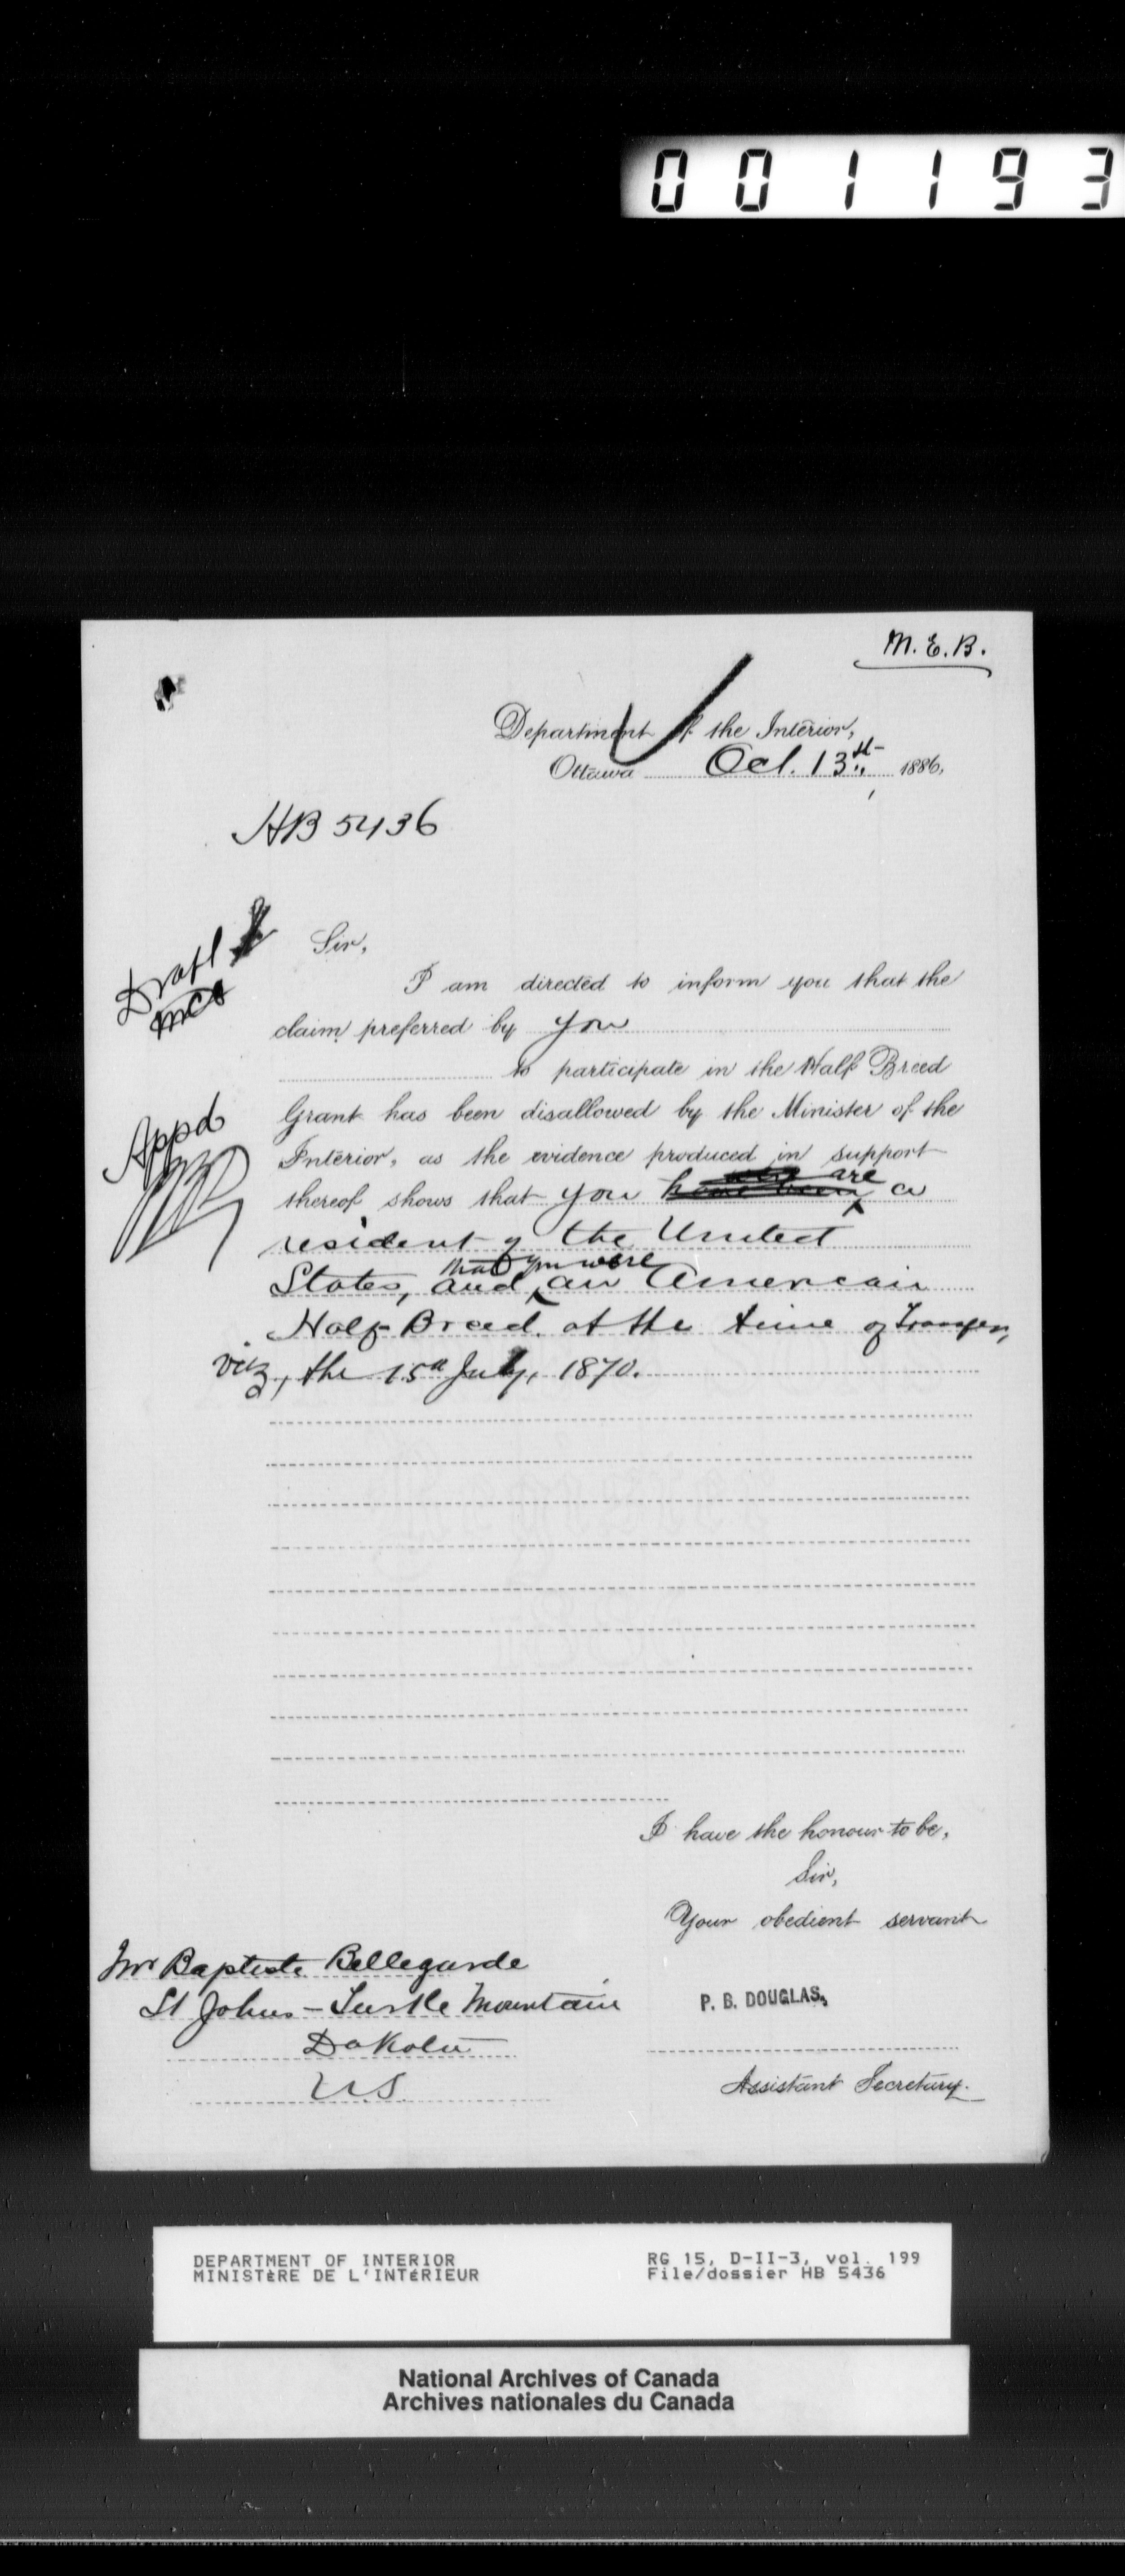 001193
M. E. B.
Department of the Interior,
Ottawa Oct. 13th 1886,
HB 5436
Draft
Sir,
I am directed to inform you that the
claim preferred by you
to participate in the Half Breed
Appd
Grant has been disallowed by the Minister of the
Interior, as the evidence produced in support
thereof shows that you are a
resident of the United
States, and that you were an American
Half-Breed at the time of transfer,
viz, the 15th July, 1870.
I have the honour to be,
Sir,
Your obedient servant
Mr Baptiste Bellegarde
St Johns - Turtle Mountain
P. B. DOUGLAS,
Dakota
U.S.
Assistant Secretary.
DEPARTMENT OF INTERIOR
MINISTÈRE DE L'INTÉRIEUR
RG 15, D-II-3, vol. 199
File/dossier HB 5436
National Archives of Canada
Archives nationales du Canada